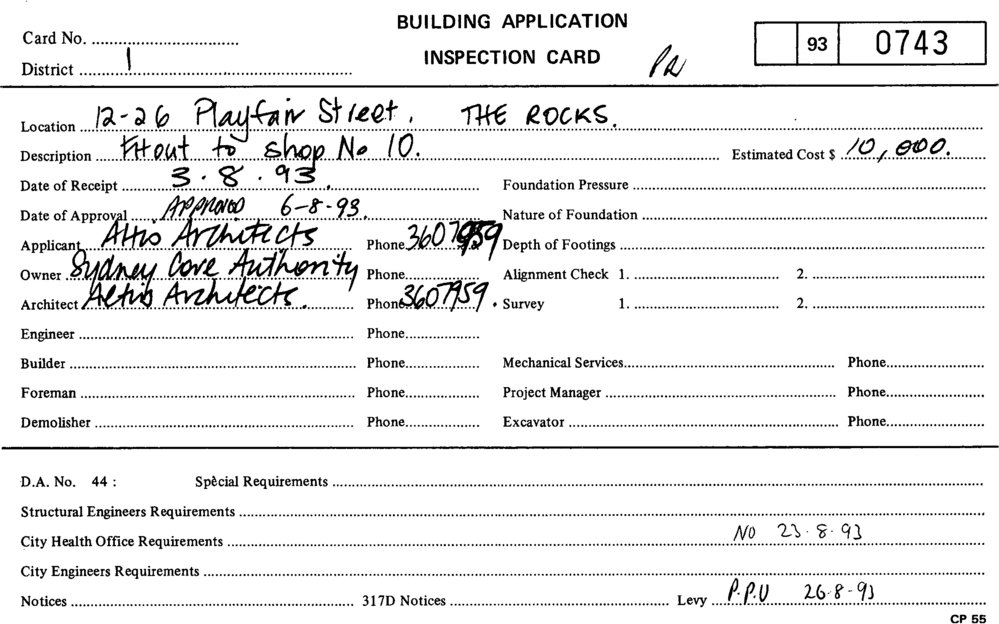 BUILDING APPLICATION
INSPECTION CARD
Card No.
District 1
93 0743
Location 12-26 Playfair Street, THE ROCKS.
Description Fitout to shop No 10. Estimated Cost $ 10,000.
Date of Receipt 3.8.93. Foundation Pressure
Date of Approval APPROVED 6-8-93. Nature of Foundation
Applicant Altis Architects Phone 3607959 Depth of Footings
Owner Sydney Cove Authority Phone Alignment Check 1. 2.
Architect Altis Architects. Phone 3607959. Survey 1. 2.
Engineer Phone
Builder Phone Mechanical Services Phone
Foreman Phone Project Manager Phone
Demolisher Phone Excavator Phone
D.A. No. 44 : Special Requirements
Structural Engineers Requirements
City Health Office Requirements NO 23.8.93
City Engineers Requirements
Notices 317D Notices Levy P.P.U 26-8-93
CP 55